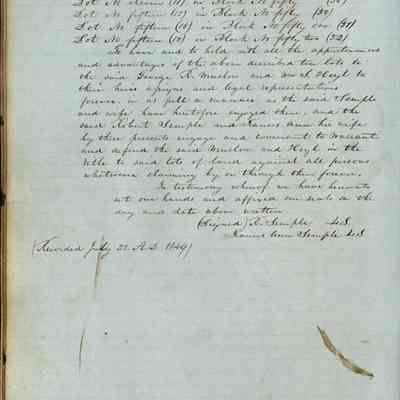 Lot No eleven (11) in Block No fifty (50)
Lot No fifteen (15) in Block No fifty (50)
Lot No fifteen (15) in Block No fifty one (51)
Lot No fifteen (15) in Block No fifty two (52)
To have and to hold with all the appurtenances
and advantages of the above described ten lots to
the said George R. Winslow and Wm A Heyl to
their heirs assigns and legal representatives
forever in as full a manner as the said Semple
and wife have heretofore enjoyed them, and the
said Robert Semple and his wife
by these presents engage and covenant to warrant
and defend the said Winslow and Heyl in the
title to said lots of land against all persons
whatsoever claiming by or through them forever.
In testimony whereof we have hereunto
set our hands and affixed our seals on the
day and date above written
(Signed) R. Semple LS
Ann Semple LS
(Recorded July 22 A.D. 1849)